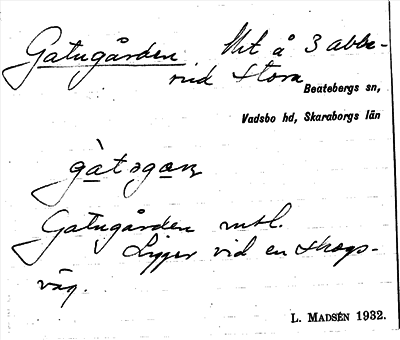 Gatugården. Ut å 3 abbe-
rud Stora
Beatebergs sn,
Vadsbo hd, Skaraborgs län
Gatugården
Ligger vid en skogs-
väg.
L. MADSÉN 1932.